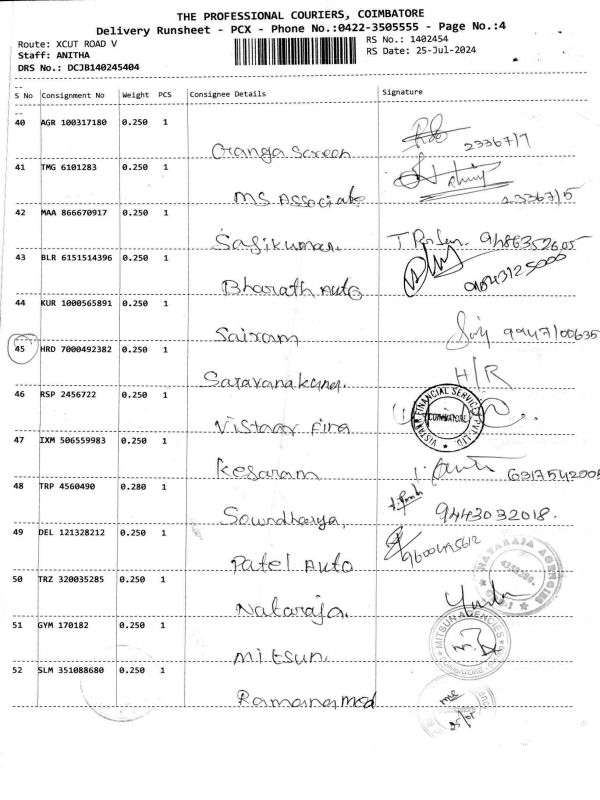 THE PROFESSIONAL COURIERS, COIMBATORE
Delivery Runsheet - PCX - Phone No.:0422-3505555 - Page No.:4
Route: XCUT ROAD V RS No.: 1402454
Staff: ANITHA RS Date: 25-Jul-2024
DRS No.: DCJB140245404
S No Consignment No Weight PCS Consignee Details Signature
40 AGR 100317180 0.250 1
Oranga Screen 23367/7
41 TMG 6101283 0.250 1
MS Associate 23367/5
42 MAA 866670917 0.250 1
Sasikumar. 9486352605
43 BLR 6151514396 0.250 1
Bharath Auto
44 KUR 1000565891 0.250 1
Sairam
45 HRD 7000492382 0.250 1
H/R
46 RSP 2456722 0.250 1
Vistaar Fina
VISTAAR FINANCIAL SERVICES PVT. LTD.
COIMBATORE
47 IXM 506559983 0.250 1
Kesaram
48 TRP 4560490 0.280 1
Soundharya, 9443032018.
49 DEL 121328212 0.250 1
Patel Auto 9600495612
50 TRZ 320035285 0.250 1
Nataraja.
NATARAJA AGENCIES
51 GYM 170182 0.250 1
Mitsun.
MITSUN AGENCIES
52 SLM 351088680 0.250 1